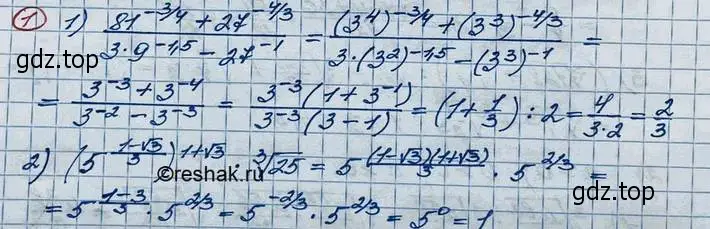 ① 1) (81^(-3/4) + 27^(-4/3)) / (3·9^(-1,5) - 27^(-1)) = ((3^4)^(-3/4) + (3^3)^(-4/3)) / (3·(3^2)^(-1,5) - (3^3)^(-1)) =
gdz.top
gdz.top
= (3^(-3) + 3^(-4)) / (3^(-2) - 3^(-3)) = (3^(-3)(1 + 3^(-1))) / (3^(-3)(3 - 1)) = (1 + 1/3) : 2 = 4/(3·2) = 2/3
2) (5^((1-√3)/3))^(1+√3) · ∛25 = 5^((1-√3)(1+√3)/3) · 5^(2/3) =
©Reshak.ru
gdz.top
= 5^((1-3)/3) · 5^(2/3) = 5^(-2/3) · 5^(2/3) = 5^0 = 1
gdz.top